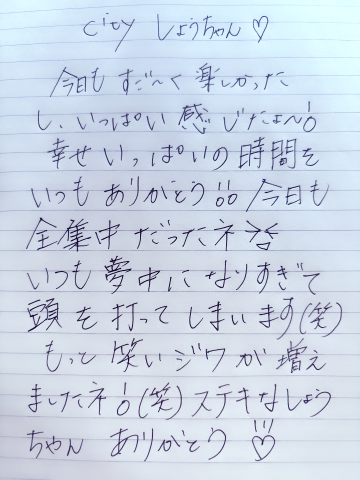 city しょうちゃん♡
今日もすご〜く楽しかった
し、いっぱい感じたよ〜!
幸せいっぱいの時間を
いつもありがとう!! 今日も
全集中だったネ
いつも夢中になりすぎて
頭を打ってしまいます(笑)
もっと笑いジワが増え
ましたネ!(笑)ステキなしょう
ちゃん ありがとう♡